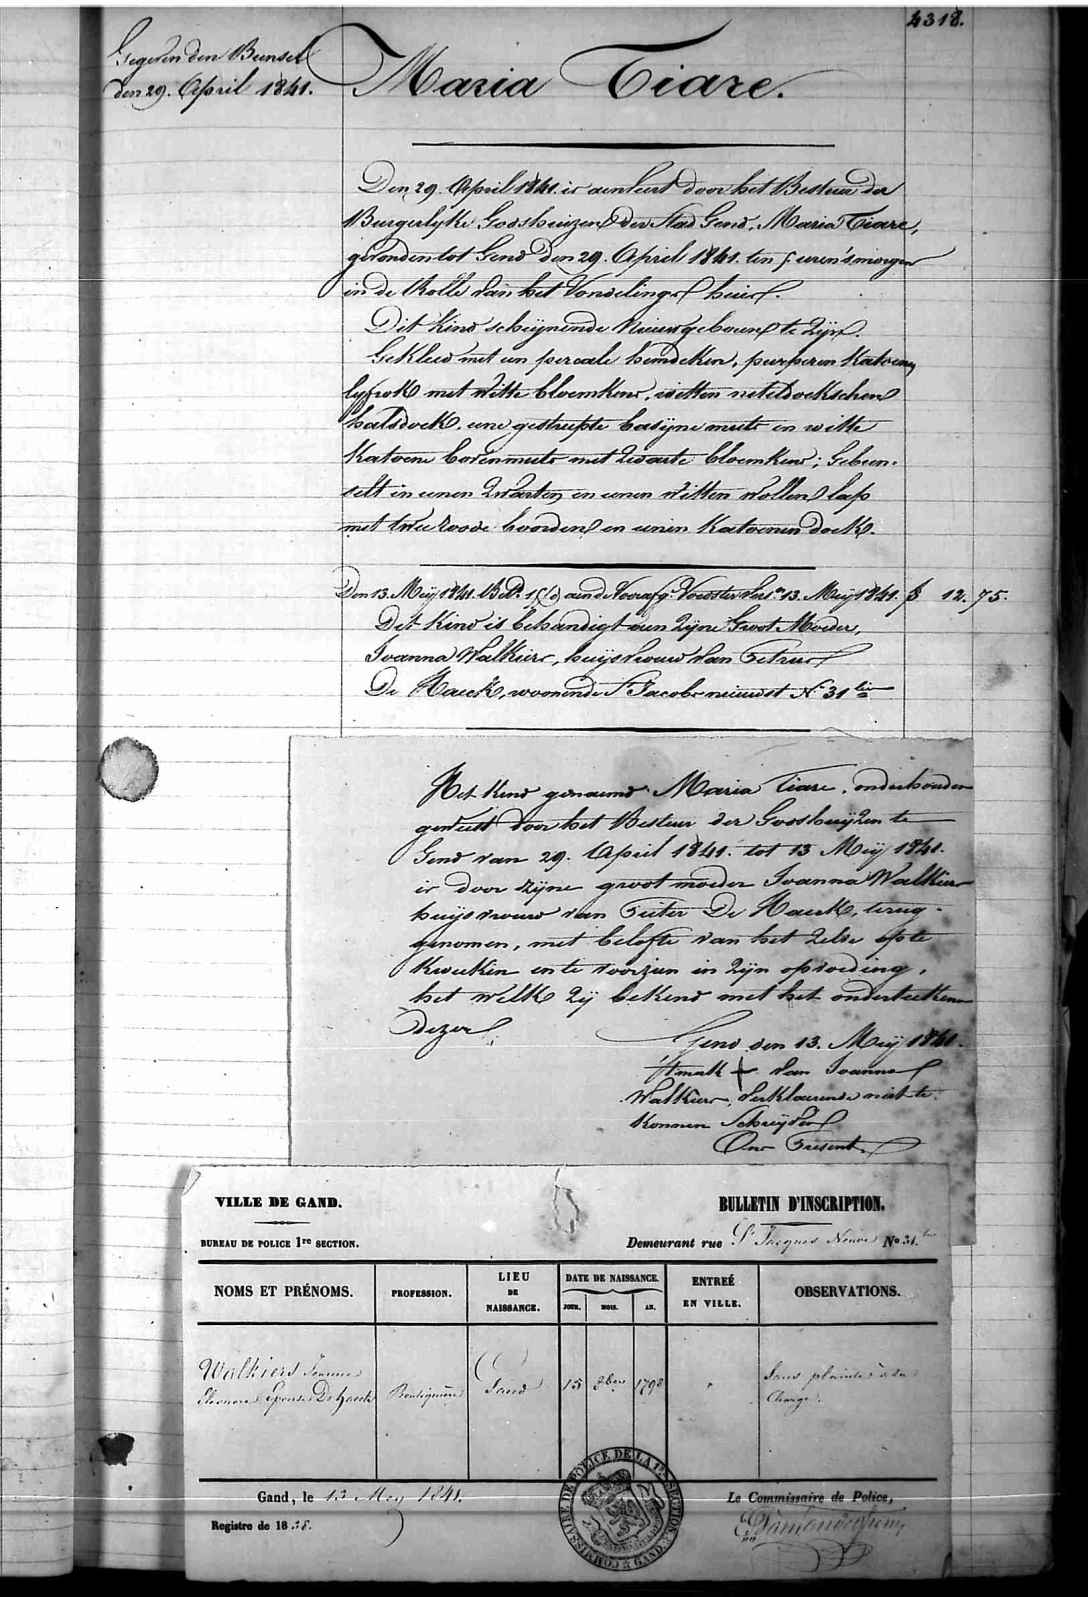 4318.
Gegeven den Bunsel
den 29. April 1841.
Maria Tiare.
Den 29. April 1841. is aenveert door het Bestuer der
Burgerlyke Godshuizen der Stad Gend, Maria Tiare,
gevonden tot Gend den 29. April 1841. ten 5 uren 's morgen
in de Rolle van het Vondelingshuis.
Dit kind schijnende nieuwgeboren te zijn.
Gekleed met een percale hemdeken, purperen katoenen
lyfrok met witte bloemkens, witten neteldoekschen
halsdoek, eene gestreepte basijne muts en witte
katoene bovenmuts met zwarte bloemkens; Gebun-
selt in eenen zwarten en eenen witten wollen lap
met twee roode boorden en eenen katoenen doek.
Den 13. Meij 1841. 13. Meij 1841. 12. 75.
Dit kind is behandigt aen zijne Groot Moeder,
Joanna Walkiers, huijsvrouw van Petrus
De Haeck, woonende St Jacobs nieuwst No 31
Het kind genaemd Maria Tiare, onderhouden
geweest door het Bestuer der Godshuijzen te
Gend van 29. April 1841. tot 13 Meij 1841.
is door zijne groot moeder Joanna Walkiers
huijsvrouw van Pieter De Haeck, terug-
genomen, met belofte van het zelve op te
kweeken en te voorzien in zijn opvoeding,
het welk zij bekend met het onderteekenen
dezer.
Gend den 13. Meij 1841.
't mark + van Joanna
Walkiers, verklaerende niet te
konnen schrijven
Ons Present.
VILLE DE GAND.
BULLETIN D'INSCRIPTION.
BUREAU DE POLICE 1re SECTION.
Demeurant rue St Jacques Neuve No 31.
NOMS ET PRÉNOMS.
PROFESSION.
LIEU DE NAISSANCE.
DATE DE NAISSANCE.
JOUR. MOIS. AN.
ENTREÉ EN VILLE.
OBSERVATIONS.
Walkiers Jeanne
Eleonore Epouse De Haeck
Boutiquière
Gand
15 8bre 1798
"
Sans plaintes à sa
charge.
COMMISSAIRE DE POLICE DE LA 1re SECTION GAND
Gand, le 13 Mey 1841.
Le Commissaire de Police,
Registre de 1838.